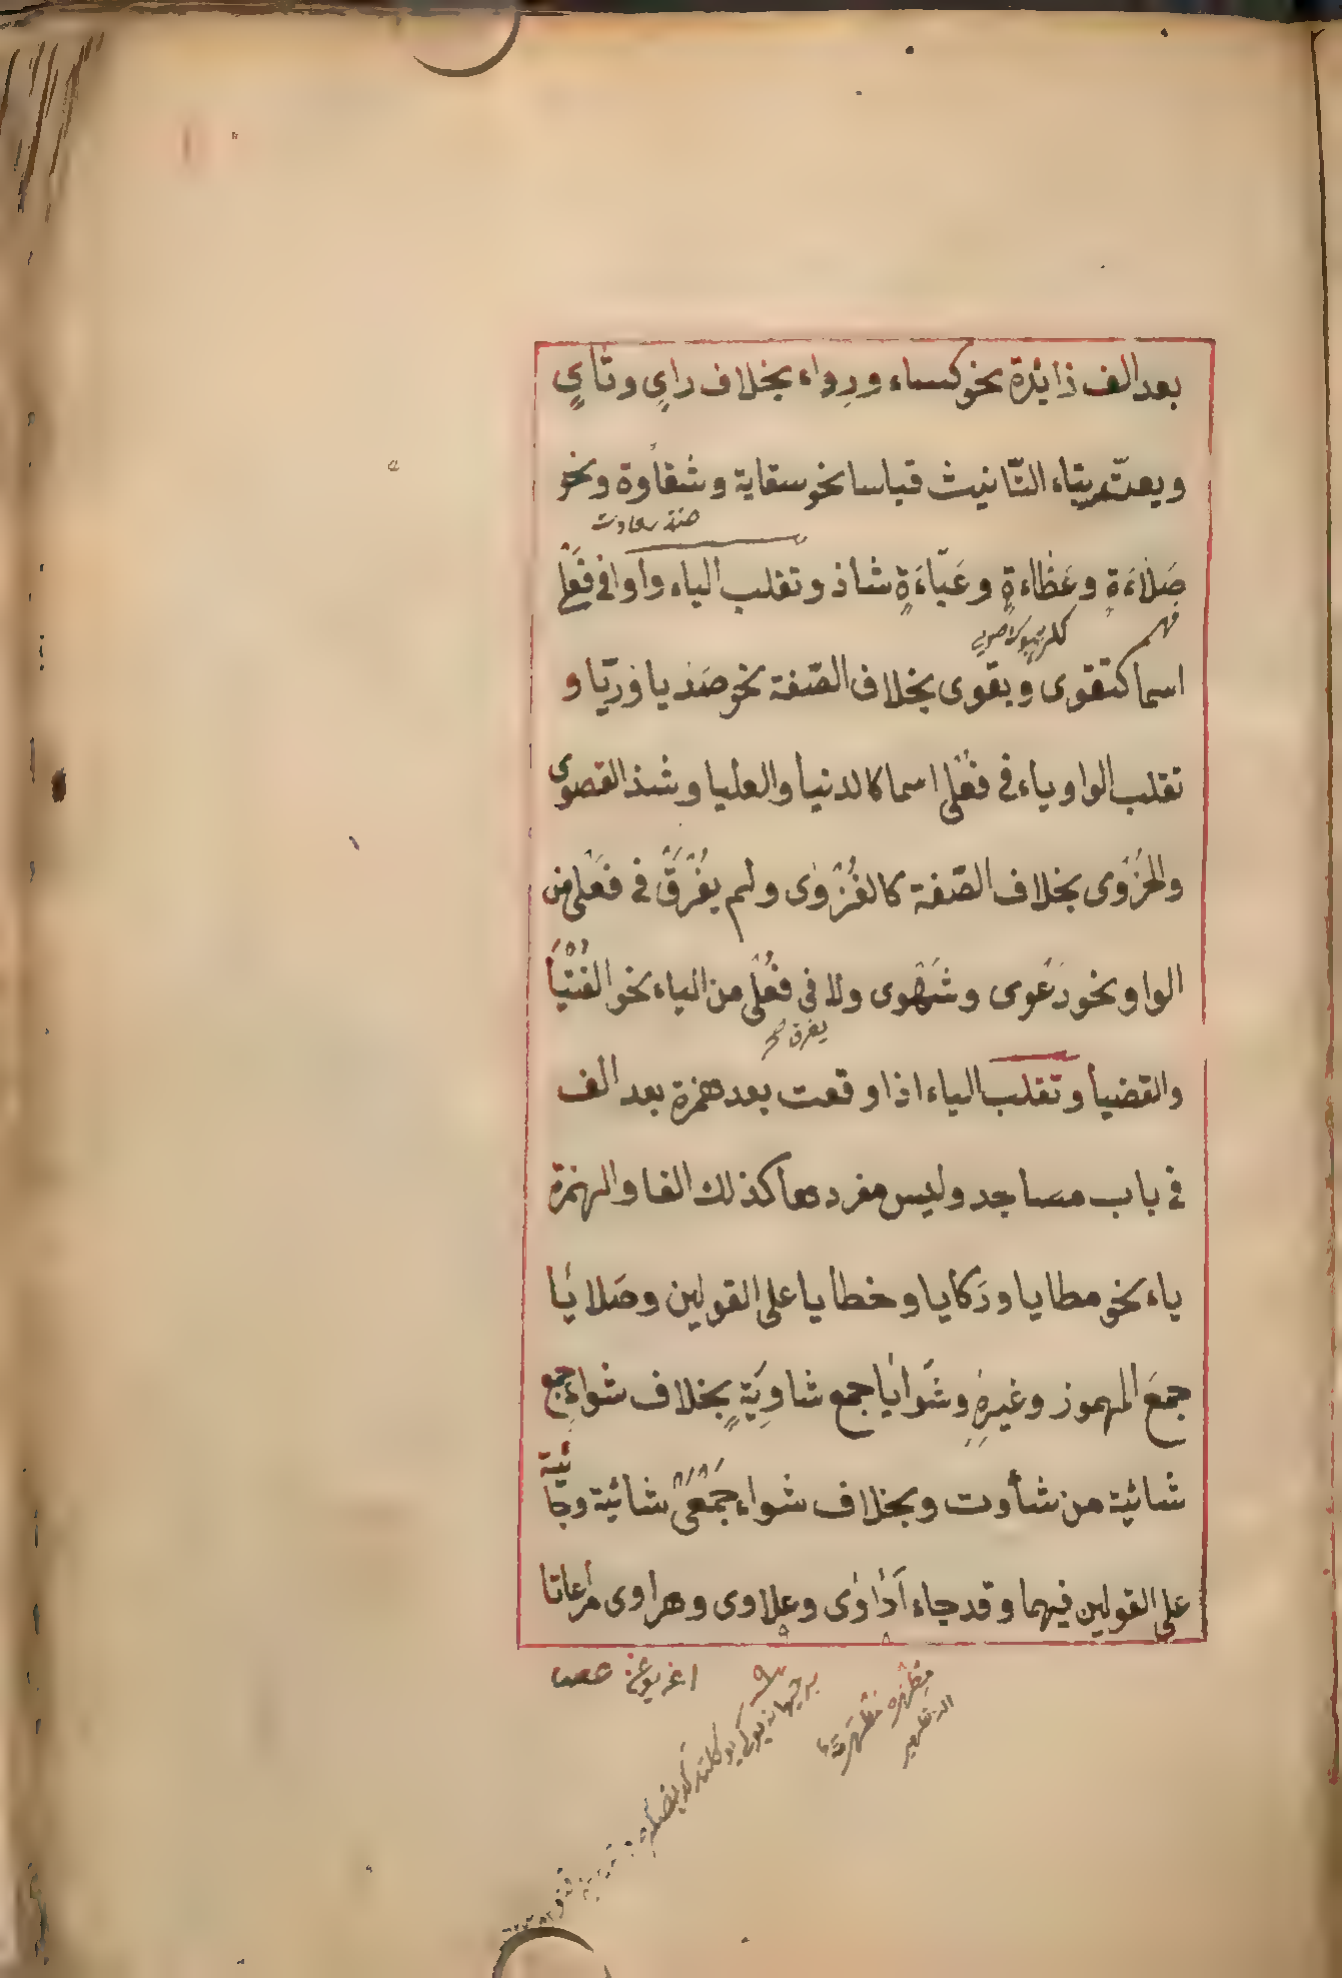 بعد الف زائدة نحو كساء ورداء بخلاف رايٍ وثايٍ
ويعتدّ بتاء التّانيث قياسا نحو سقاية وشقاوة ونحو
صَلاءَةٍ وعَظاءةٍ وعَبَاءَةٍ شاذ وتقلب الياء واوا في فَعْلى
اسما كتقوى وبقوى بخلاف الصّفة نحو صَدْيا ورَيّا و
تقلب الواو ياء في فُعْلى اسما كالدنيا والعليا وشذ القصوى
والحُزْوى بخلاف الصّفة كالغُزْوى ولم يُفْرَقْ في فَعْلى من
الواو نحو دَعْوى وشَهْوى ولا في فُعْلى من الياء نحو الفُتْيَا
يفرق صح
والقضيا وتقلب الياء اذا وقعت بعد همزة بعد الف
في باب مساجد وليس مفردها كذلك الفا والهمزة
ياء نحو مطايا وركايا وخطايا على القولين وصَلايَا
جمعَ المهموز وغيرِهِ وشَوايَا جمع شاوِيَةٍ بخلاف شواءٍ جمع
شائية من شأوت وبخلاف شواء جَمْعَىْ شائية وجا
ئية
على القولين فيهما وقد جاء اَدَاوَى وعلاوى وهراوى مراعاتا